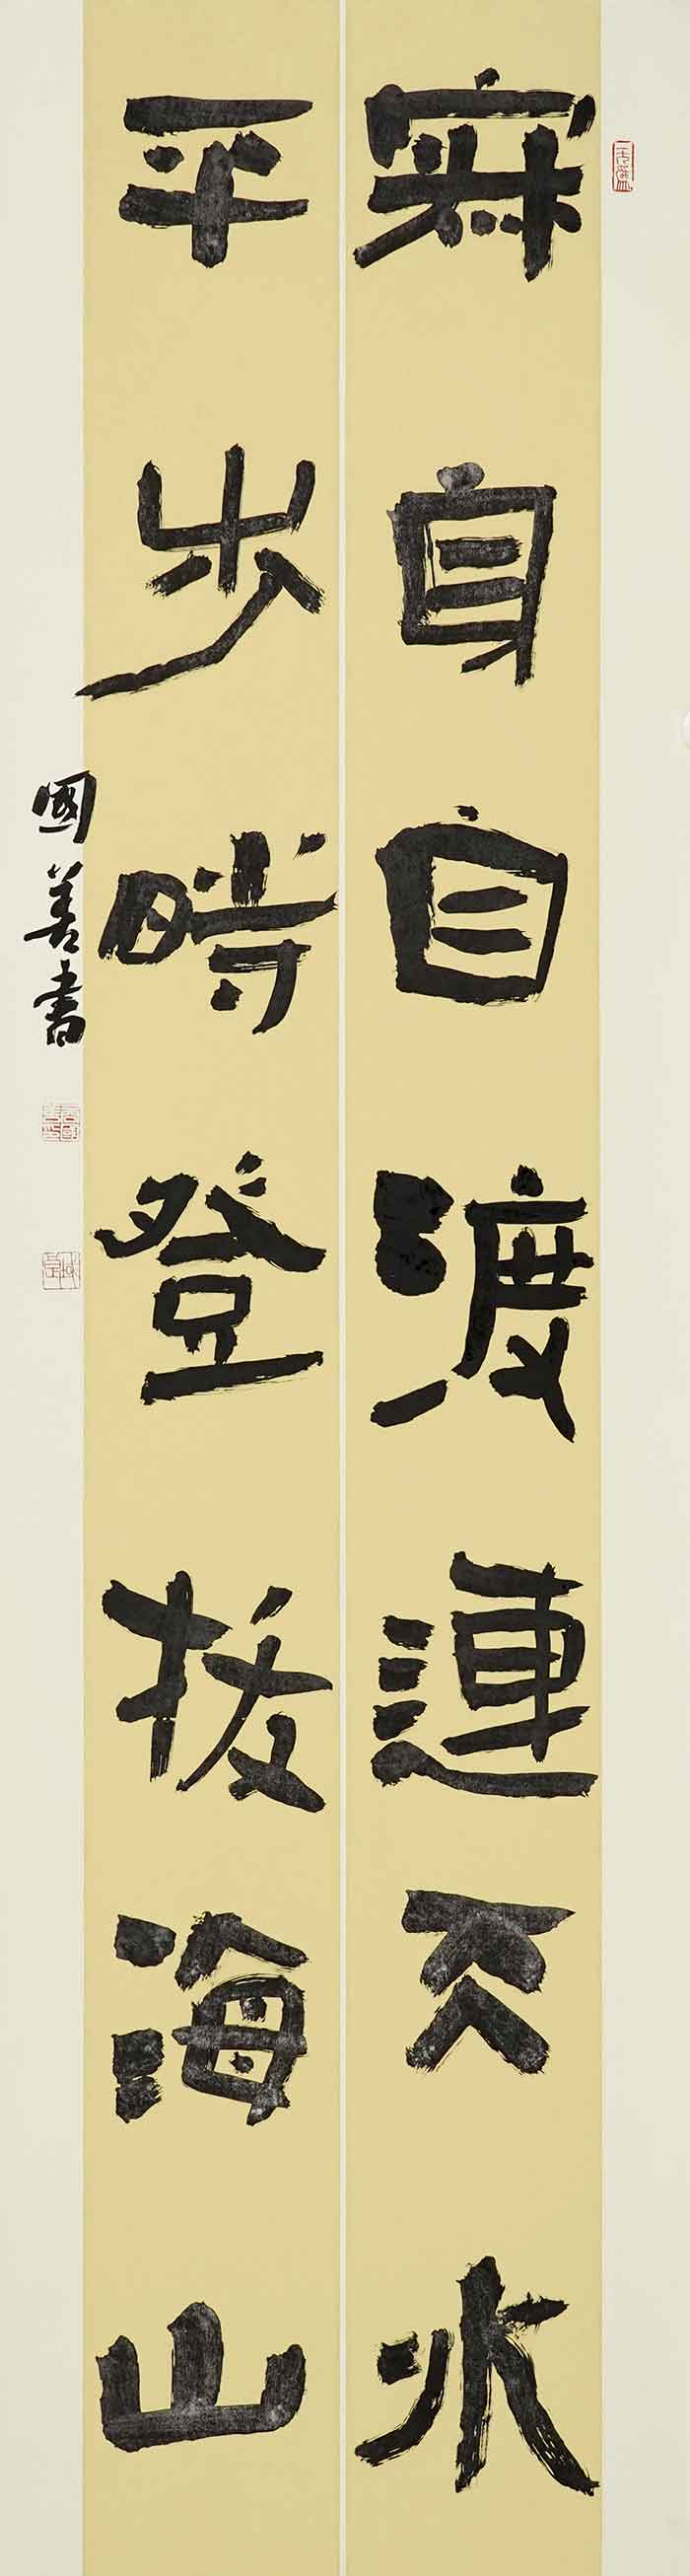 自自渡連天水
平步時登拔海山
國善書